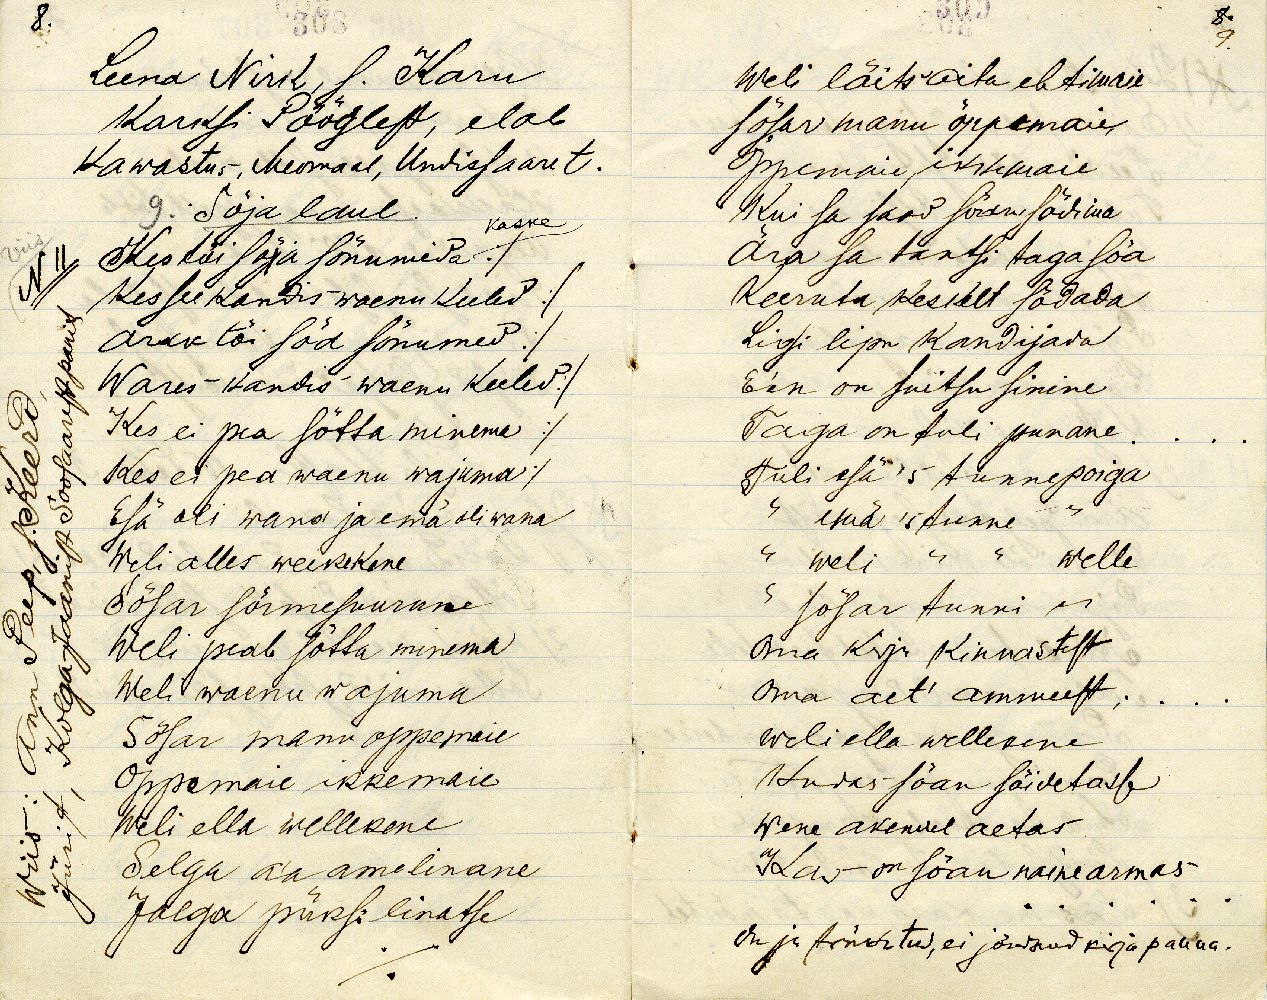 8.
308
Leena Nirk, s. Karu
Karksi Pööglest, elab
Kawastus, Meomaal, Undissaaret.
9. Sõja laul.
kaske
Kes tõi sõja sõnumeda :/
Kes see kandis waenu keeled :/
Arak tõi sõa sõnumed :/
Wares kandis waenu keeled :/
Kes ei pea sõtta minema :/
Kes ei pea waenu wajuma :/
Esä oli wana ja emä oli wana
Weli alles weikekene
Sõsar sõrmesuurune
Weli peab sõtta minema
Weli waenu wajuma
Sõsar manu oppemaie
Oppemaie ikkemaie
Weli ella wellekene
Selga aa amelinane
Jalga püksi linatse
./.
viis
N 11
Wiis: Ann Peep, s. Koerd,
Jürist, Kolga-Jaanist Soosaarest pärit
309
8.
9.
Weli läits aita ehtimaie
sõsar manu õppemaie
Õppemaie, ikkemaie
Kui sa saad sõdima
Ära sa tantsi taga sõa
Keeruta keskelt sõdada
Ligi lipu kandijada
Een on suitsu sinine
Taga on tuli punane . . . .
Tuli esä 's tunne poiga
" emä 's tunne "
" weli " " welle
" sõsar tunni es
Oma kirju kinnastest
Oma aet' ammeest, . . . .
Weli ella wellekene
Kudas sõan sõidetasse
Wene akenuel aetas
Kas on sõan naine armas
. . . . . .
On ju trükitud, ei jõudnud kirja panna.